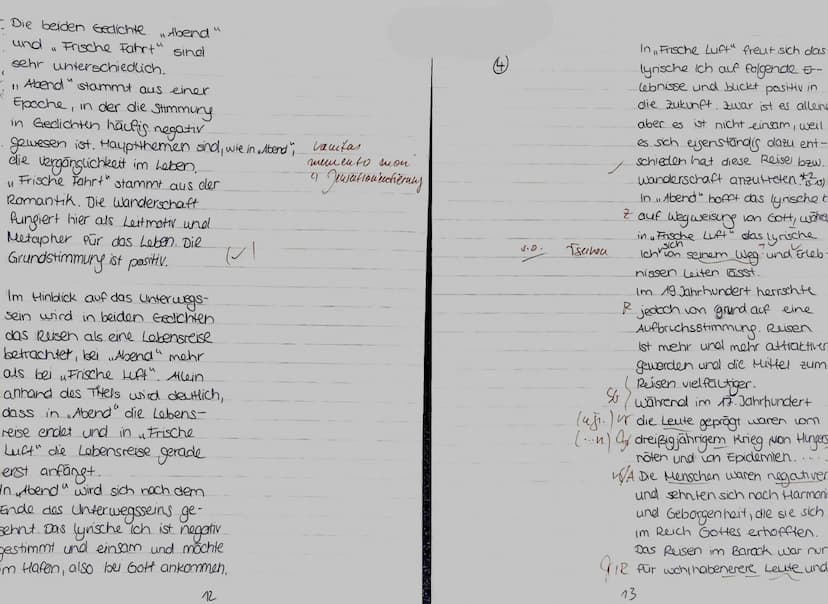 Die beiden Gedichte „Abend"
und „Frische Fahrt" sind
sehr unterschiedlich.
„Abend" stammt aus einer
Epoche, in der die Stimmung
in Gedichten häufig negativ
gewesen ist. Hauptthemen sind, wie in „Abend",
die Vergänglichkeit im Leben.
„Frische Fahrt" stammt aus der
Romantik. Die Wanderschaft
fungiert hier als Leitmotiv und
Metapher für das Leben. Die
Grundstimmung ist positiv.
vanitas
memento mori
(✓)
Im Hinblick auf das Unterwegs-
sein wird in beiden Gedichten
das Reisen als eine Lebensreise
betrachtet, bei „Abend" mehr
als bei „Frische Luft". Allein
anhand des Titels wird deutlich,
dass in „Abend" die Lebens-
reise endet und in „Frische
Luft" die Lebensreise gerade
erst anfängt.
In „Abend" wird sich nach dem
Ende des Unterwegsseins ge-
sehnt. Das lyrische Ich ist negativ
gestimmt und einsam und möchte
im Hafen, also bei Gott ankommen.
12
4
In „Frische Luft" freut sich das
lyrische Ich auf folgende Er-
lebnisse und blickt positiv in
die Zukunft. Zwar ist es allein
aber es ist nicht einsam, weil
es sich eigenständig dazu ent-
schieden hat diese Reise bzw.
✓ Wanderschaft anzutreten. *2
In „Abend" hofft das lyrische
Z auf Wegweisung von Gott,
in „Frische Luft" das lyrische
s.o.
Ich sich von seinem Weg und Erleb-
nissen leiten lässt.
Im 19. Jahrhundert herrschte
R jedoch von grund auf eine
Aufbruchsstimmung. Reisen
ist mehr und mehr attraktiver
geworden und die Mittel zum
Reisen vielfältiger.
Während im 17. Jahrhundert
die Leute geprägt waren vom
dreißigjährigem Krieg von Hungers
nöten und von Epidemien.
A Die Menschen waren negativer
und sehnten sich nach Harmoni
und Geborgenheit, die sie sich
im Reich Gottes erhofften.
Das Reisen im Barock war nur
R für wohlhabenerere Leute und
13